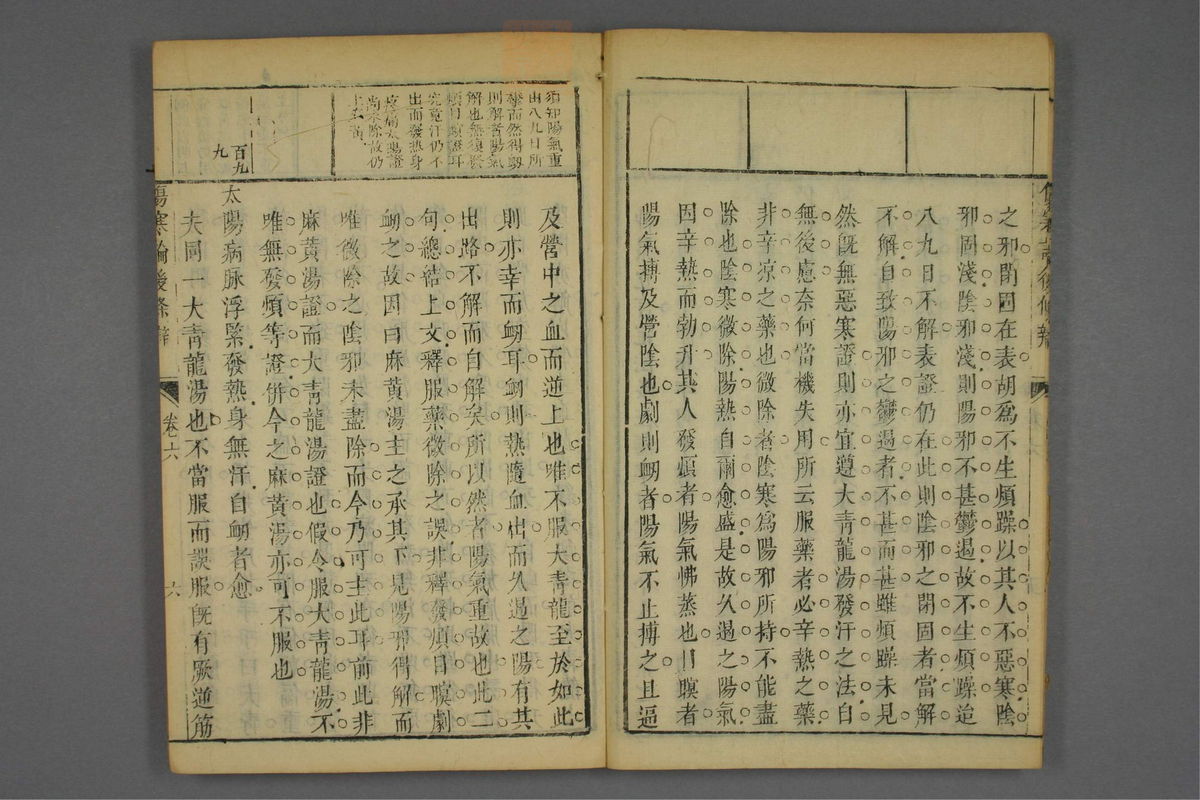 之邪閉固在表胡爲不生煩躁以其人不惡寒陰
邪固淺陰邪淺則陽邪不甚鬱遏故不生煩躁迨
八九日不解表證仍在此則陰邪之閉固者當解
不解自致陽邪之鬱遏者不甚而甚雖煩躁未見
然旣無惡寒證則亦宜遵大青龍湯發汗之法自
無後慮奈何當機失用所云服藥者必辛熱之藥
非辛凉之藥也微除者陰寒爲陽邪所持不能盡
除也陰寒微除陽熱自爾愈盛是故久遏之陽氣
因辛熱而勃升其人發煩者陽氣怫蒸也目瞑者
陽氣搏及營陰也劇則衂者陽氣不止搏之且逼
須知陽氣重
由八九日所
鬱而然得衂
則解者陽氣
解也無復發
煩目瞑證耳
究竟汗仍不
出而發熱身
疼痛太陽證
尚不除故仍
及營中之血而逆上也唯不服大青龍至於如此
則亦幸而衂耳衂則熱隨血出而久遏之陽有其
出路不解而自解矣所以然者陽氣重故也此二
句總結上文釋服藥微除之誤非釋發煩目瞑劇
衂之故因曰麻黃湯主之承其下見陽邪得解而
唯微除之陰邪未盡除而今乃可主此耳前此非
麻黃湯證而大青龍湯證也假令服大青龍湯不
唯無發煩等證併今之麻黃湯亦可不服也
百九
九
太陽病脉浮緊發熱身無汗自衂者愈
夫同一大青龍湯也不當服而誤服旣有厥逆筋
傷寒論後條辨
卷六
六